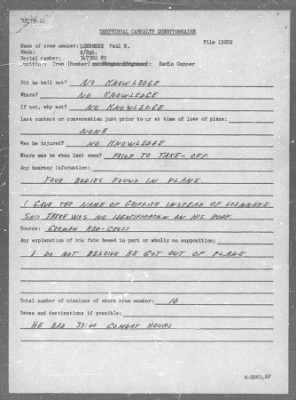 INDIVIDUAL CASUALTY QUESTIONNAIRE
File 13202
Name of crew member: Paul E.
Rank: S/Sgt.
Serial number:
Position: Crew (Bomber) Radio Gunner
Did he bail out? NO KNOWLEDGE
Where? NO KNOWLEDGE
If not, why not? NO KNOWLEDGE
Last contact or conversation just prior to or at time of loss of plane:
NONE
Was he injured? NO KNOWLEDGE
Where was he when last seen? PRIOR TO TAKE-OFF
Any hearsay information:
FOUR BODIES FOUND IN PLANE.
I GAVE THE NAME OF GRIFFITH INSTEAD OF
SAID THERE WAS NO IDENTIFICATION ON HIS BODY.
Source: GERMAN RED-CROSS
Any explanation of his fate based in part or wholly on supposition:
I DO NOT BELEIVE HE GOT OUT OF PLANE
Total number of missions of above crew member: 10
Dates and destinations if possible:
HE HAD 37:00 COMBAT HOURS
6-3861,AF